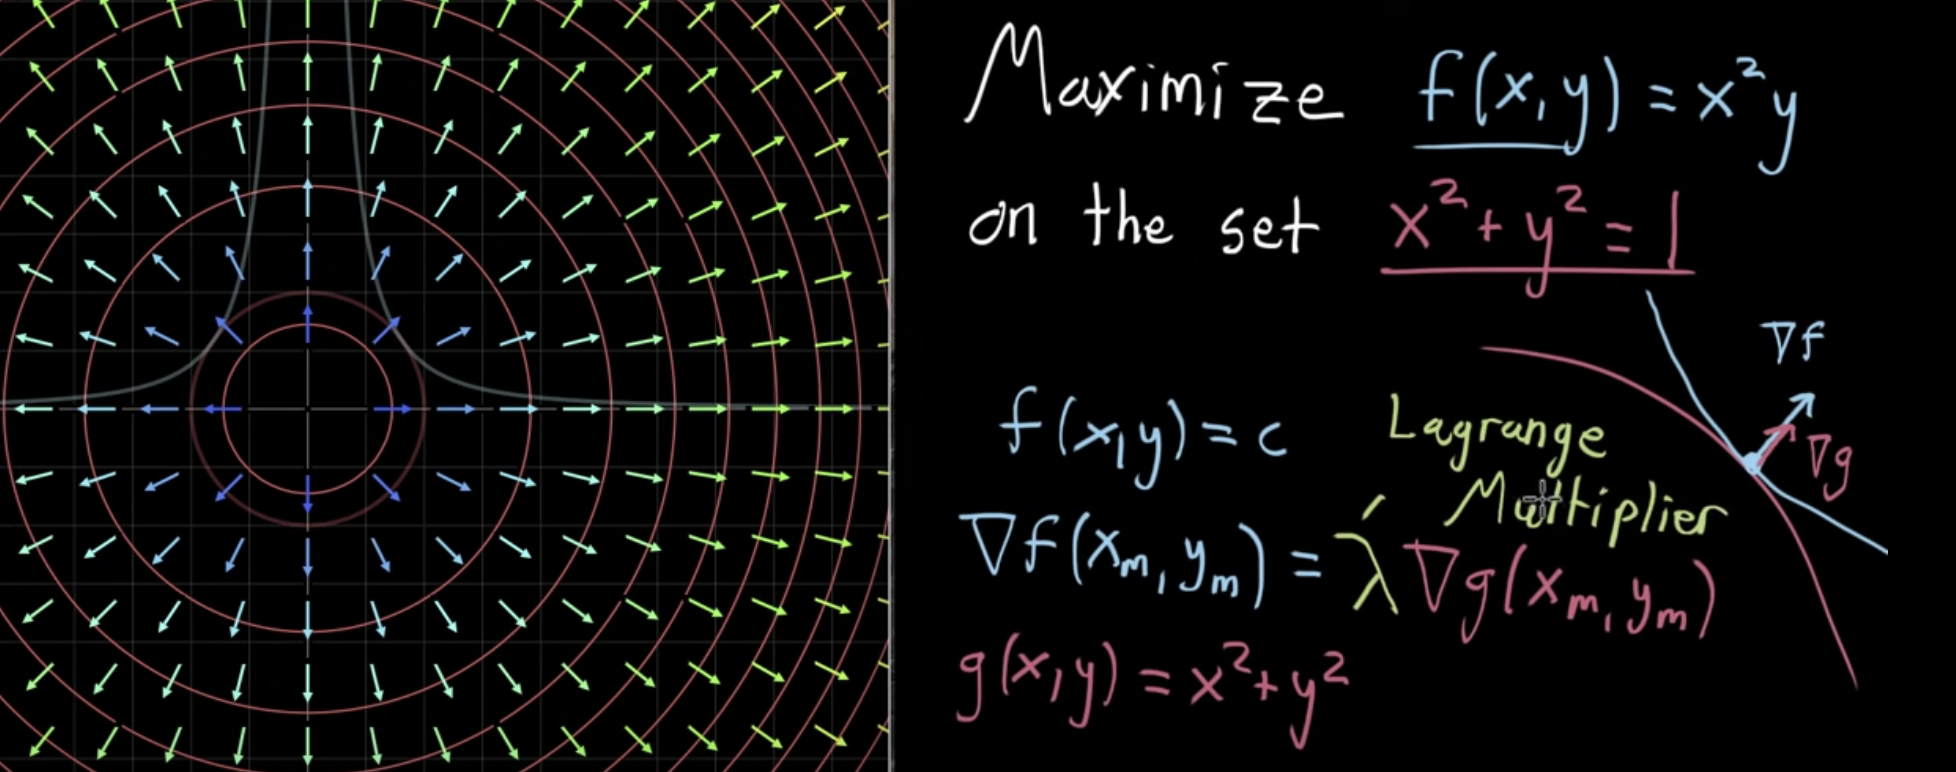 Maximize f(x,y) = x²y
on the set x² + y² = 1
∇f
∇g
f(x,y) = c
Lagrange
Multiplier
∇f(xₘ, yₘ) = λ∇g(xₘ, yₘ)
g(x,y) = x² + y²